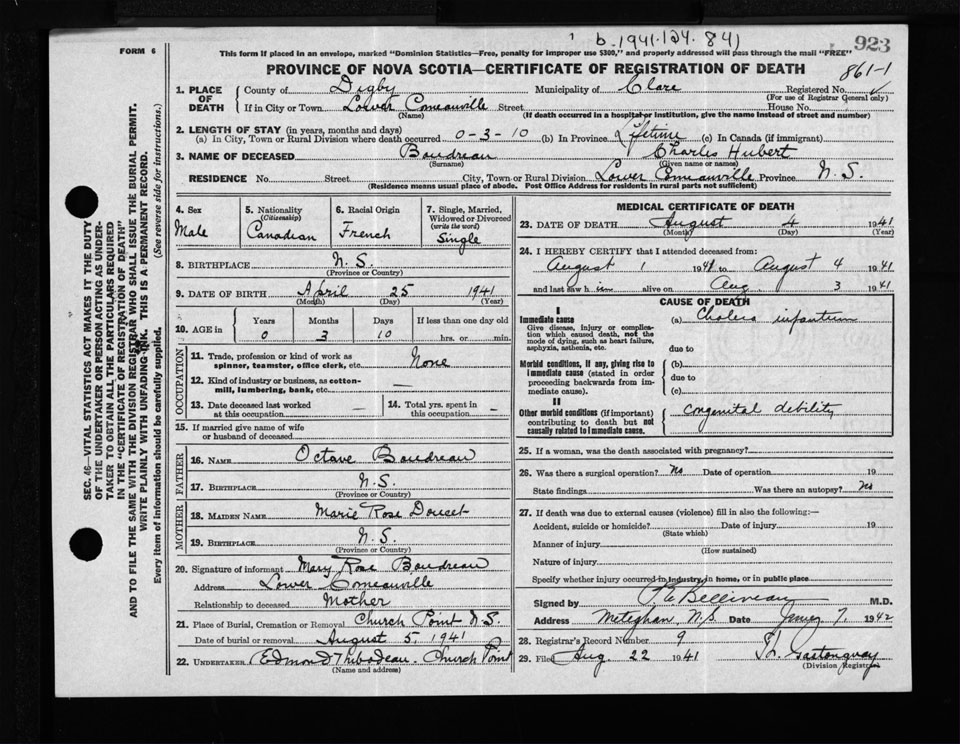 b. 1941.124.841
923
FORM 6
This form if placed in an envelope, marked "Dominion Statistics—Free, penalty for improper use $300," and properly addressed will pass through the mail "FREE"
PROVINCE OF NOVA SCOTIA—CERTIFICATE OF REGISTRATION OF DEATH
861-1
1. PLACE OF DEATH
County of Digby Municipality of Clare Registered No.
(For use of Registrar General only)
If in City or Town Lower Comeauville Street House No.
(Name) (If death occurred in a hospital or institution, give the name instead of street and number)
2. LENGTH OF STAY (in years, months and days)
(a) In City, Town or Rural Division where death occurred 0-3-10 (b) In Province Lifetime (c) In Canada (if immigrant)
3. NAME OF DECEASED Boudreau Charles Hubert
(Surname) (Given name or names)
RESIDENCE No. Street City, Town or Rural Division Lower Comeauville Province N.S.
(Residence means usual place of abode. Post Office Address for residents in rural parts not sufficient)
4. Sex
Male
5. Nationality
(Citizenship)
Canadian
6. Racial Origin
French
7. Single, Married, Widowed or Divorced
(write the word)
Single
8. BIRTHPLACE N.S.
(Province or Country)
9. DATE OF BIRTH April 25 1941
(Month) (Day) (Year)
10. AGE in
Years Months Days If less than one day old
0 3 10 hrs. or min.
OCCUPATION
11. Trade, profession or kind of work as spinner, teamster, office clerk, etc. None
12. Kind of industry or business, as cotton-mill, lumbering, bank, etc. —
13. Date deceased last worked at this occupation —
14. Total yrs. spent in this occupation —
15. If married give name of wife or husband of deceased
FATHER
16. NAME Octave Boudreau
17. BIRTHPLACE N.S.
(Province or Country)
MOTHER
18. MAIDEN NAME Marie Rose Doucet
19. BIRTHPLACE N.S.
(Province or Country)
20. Signature of informant Mary Rose Boudreau
Address Lower Comeauville
Relationship to deceased Mother
21. Place of Burial, Cremation or Removal Church Point N.S.
Date of burial or removal August 5 1941
22. UNDERTAKER Edmond Thibodeau. Church Point
(Name and address)
MEDICAL CERTIFICATE OF DEATH
23. DATE OF DEATH August 4 1941
(Month) (Day) (Year)
24. I HEREBY CERTIFY that I attended deceased from:
August 1 1941 to August 4 1941
and last saw him alive on Aug. 3 1941
CAUSE OF DEATH
I
Immediate cause
Give disease, injury or complication which caused death, not the mode of dying, such as heart failure, asphyxia, asthenia, etc.
(a) Cholera infantum
due to
Morbid conditions, if any, giving rise to immediate cause (stated in order proceeding backwards from immediate cause).
(b)
due to
(c)
II
Other morbid conditions (if important) contributing to death but not causally related to immediate cause.
Congenital debility
25. If a woman, was the death associated with pregnancy?
26. Was there a surgical operation? No Date of operation 19
State findings Was there an autopsy? No
27. If death was due to external causes (violence) fill in also the following:—
Accident, suicide or homicide? Date of injury 19
(State which)
Manner of injury
(How sustained)
Nature of injury
Specify whether injury occurred in industry, in home, or in public place
Signed by Belliveau M.D.
Address Meteghan, N.S. Date 7, 1942
28. Registrar's Record Number 9
29. Filed Aug 22 1941 Gastonguay
(Division Registrar)
SEC. 46—VITAL STATISTICS ACT MAKES IT THE DUTY
OF THE UNDERTAKER OR PERSON ACTING AS UNDER-
TAKER TO OBTAIN ALL THE PARTICULARS REQUIRED
IN THE "CERTIFICATE OF REGISTRATION OF DEATH"
AND TO FILE THE SAME WITH THE DIVISION REGISTRAR WHO SHALL ISSUE THE BURIAL PERMIT.
WRITE PLAINLY WITH UNFADING INK. THIS IS A PERMANENT RECORD.
Every item of information should be carefully supplied. (See reverse side for instructions.)